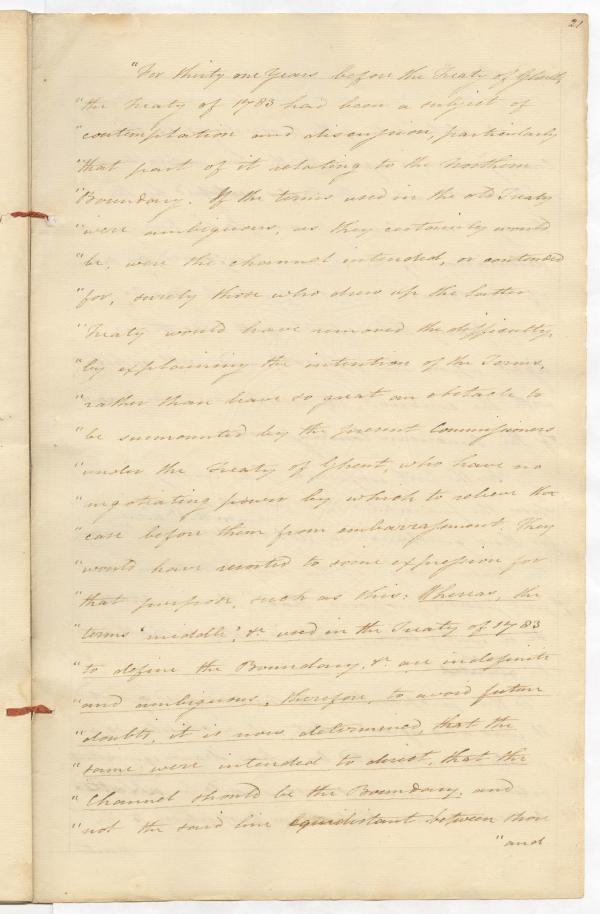 21
"For thirty one Years before the Treaty of Ghent,
"the Treaty of 1783 had been a subject of
"contemplation and discussion, particularly
"that part of it relating to the Northern
"Boundary. If the terms used in the old Treaty
"were ambiguous, as they certainly would
"be, were the channel intended, or contended
"for, surely those who drew up the latter
"Treaty would have removed the difficulty,
"by explaining the intention of the Terms,
"rather than leave so great an obstacle to
"be surmounted by the present Commissioners
"under the Treaty of Ghent, who have no
"negotiating power by which to relieve the
"case before them from embarrassment. They
"would have resorted to some expression for
"that purpose, such as this: Whereas, the
"terms 'middle', &c. used in the Treaty of 1783
"to define the Boundary, &c. are indefinite
"and ambiguous, therefore, to avoid future
"doubts, it is now determined, that the
"same were intended to direct, that the
"Channel should be the Boundary, and
"not the said line equidistant between those
"and